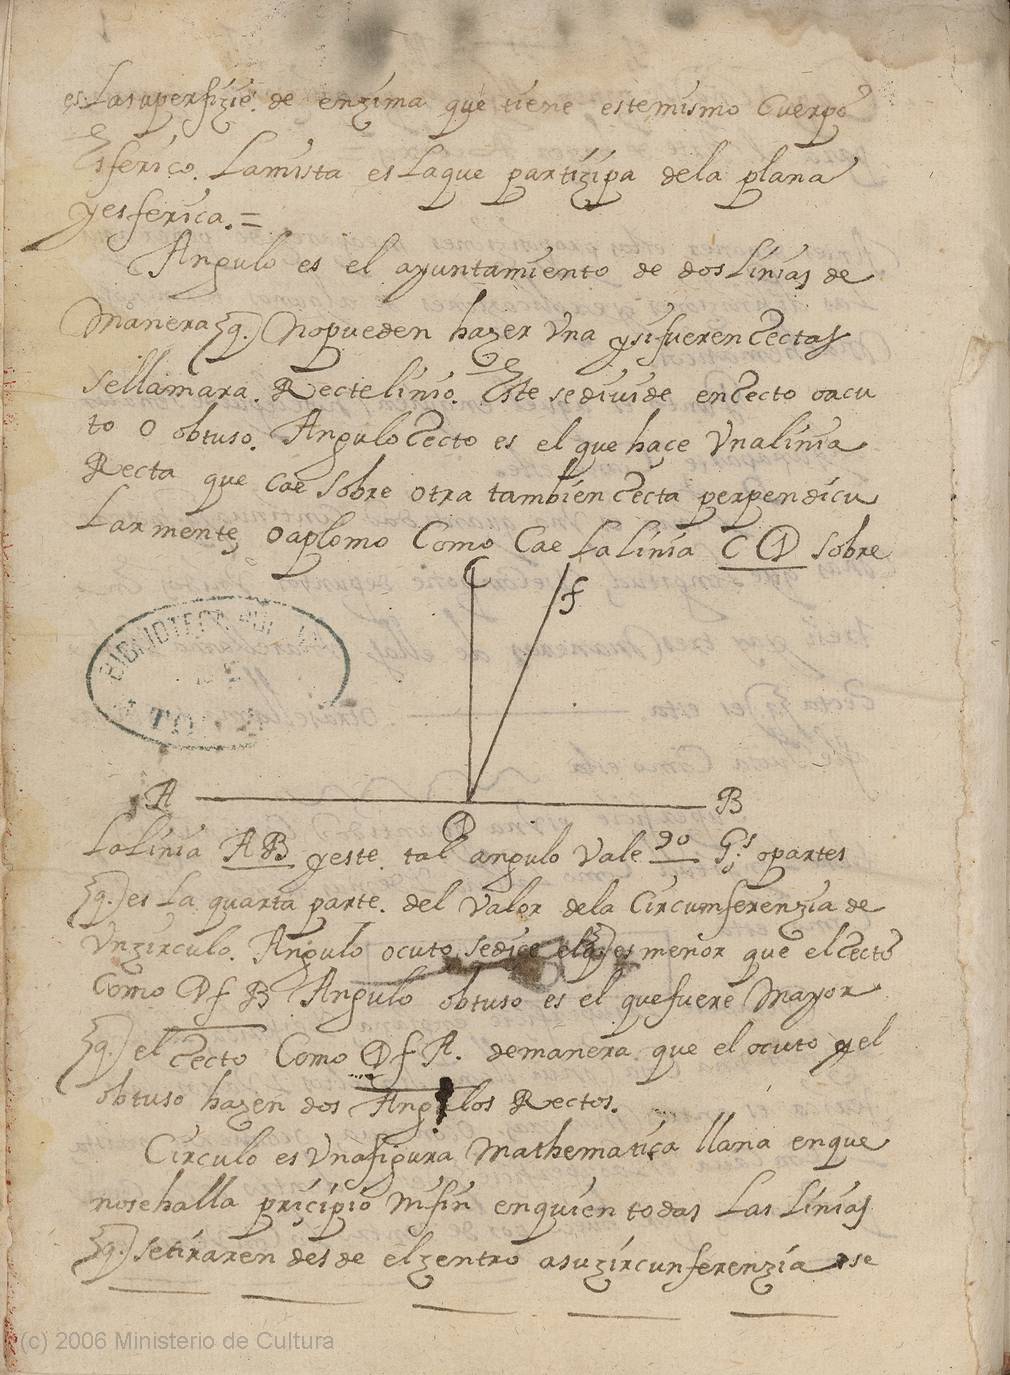 es La superfizie de enzima que tiene este mismo Cuerpo
Esferico. La mista es La que partizipa de la plana
y esferica. =
Angulo es el ayuntamiento de dos Linias de
Manera q. No pueden hazer Vna y si fueren Rectas
se llamara. Rectelinio. Este se diuide en Recto o acu
to o obtuso. Angulo Recto es el que hace Vna linia
Recta que cae sobre otra tambien Recta perpendicu
Larmente, o aplomo Como Cae La linia C D sobre
C
f
BIBLIOTECA
TO
A
B
D
La linia A B y este tal angulo Vale 90 G.s o partes
q. es La quarta parte. del Valor de la Circumferenzia de
Vn zirculo. Angulo ocuto se dize el q. es menor que el Recto
Como D f B Angulo obtuso es el que fuere Mayor
q. el Recto Como D f A. de manera que el ocuto y el
obtuso hazen dos Angulos Rectos.
Circulo es Vna figura Mathematica llana en que
no se halla pricipio ni fin en quien todas Las linias
q. se tiraren desde el zentro a su zircunferenzia se
(c) 2006 Ministerio de Cultura